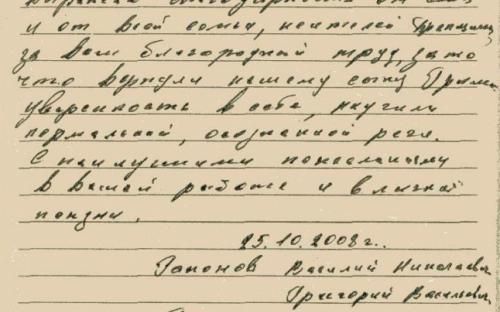 и от всей семьи,
за ваш благородный труд, за то
что вернули нашему сыну
уверенность в себе, научили
нормальной, осознанной речи.
С наилучшими пожеланиями
в вашей работе и в личной
жизни.
25.10.2008г..
Василий Николаевич
Григорий Васильевич